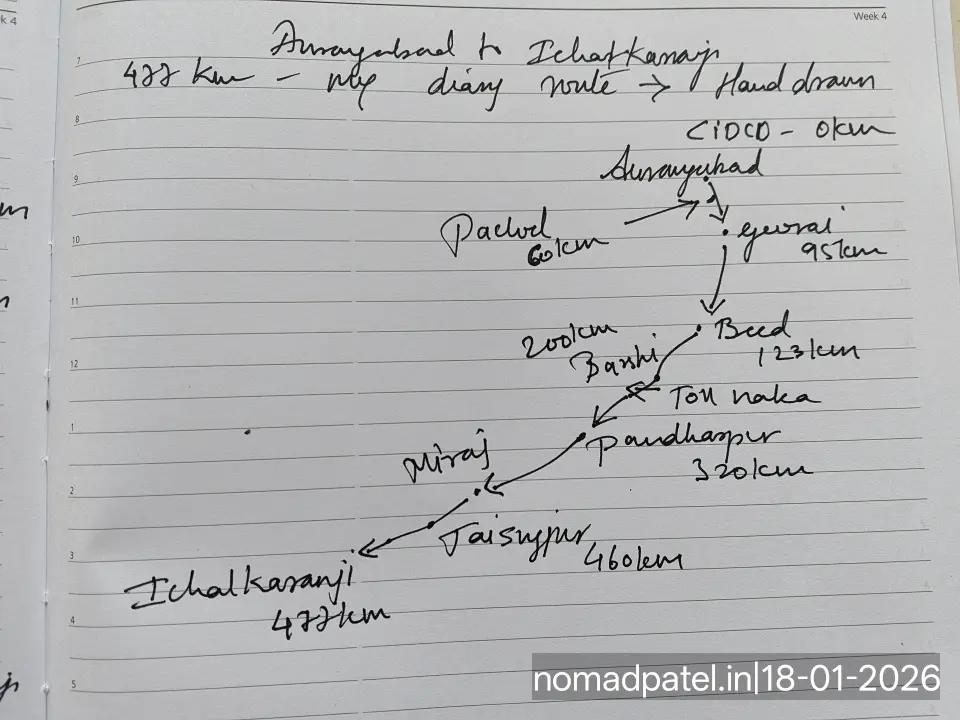 Week 4
k 4
7
Aurangabad to Ichalkaranji
477 km - my diary route → Hand drawn
8
CIDCO - 0km
9
Aurangabad
Pachod
60km
10
georai
95km
11
200km
Barshi
Beed
123km
12
Toll naka
1
Pandharpur
320km
Miraj
2
Jaisingpur
460km
3
Ichalkaranji
477km
4
5
nomadpatel.in|18-01-2026